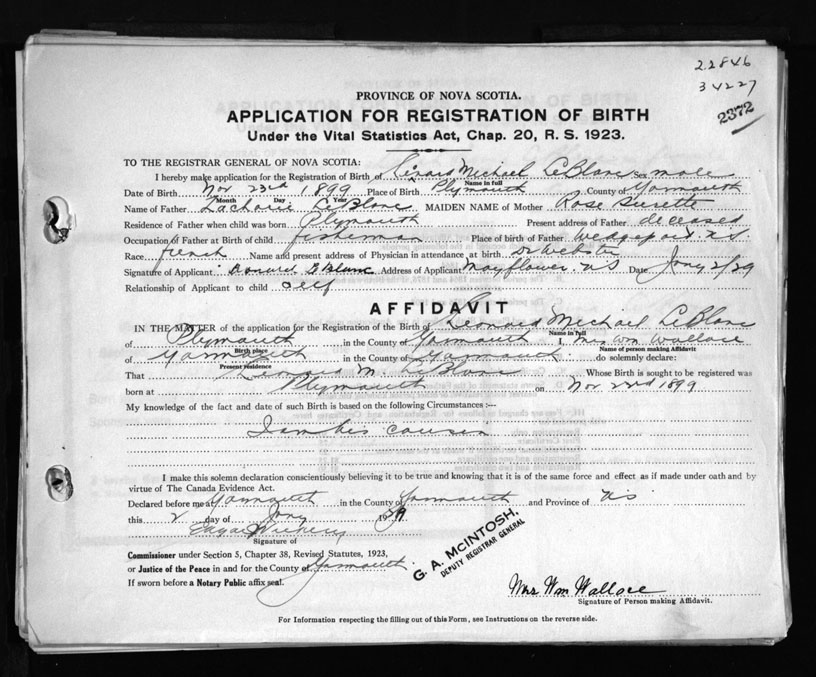 22846
34227
2372
PROVINCE OF NOVA SCOTIA.
APPLICATION FOR REGISTRATION OF BIRTH
Under the Vital Statistics Act, Chap. 20, R. S. 1923.
TO THE REGISTRAR GENERAL OF NOVA SCOTIA:
I hereby make application for the Registration of Birth of Leonard Michael LeBlanc Sex male
Name in full
Date of Birth Nov 23rd 1899 Place of Birth Plymouth County of Yarmouth
Month Day Year
Name of Father Zacharie LeBlanc MAIDEN NAME of Mother Rose Surette
Residence of Father when child was born Plymouth Present address of Father deceased
Occupation of Father at Birth of child fisherman Place of birth of Father Wedgeport N S
Race french Name and present address of Physician in attendance at birth Dr Webster
Signature of Applicant Leonard LeBlanc Address of Applicant Mayflower N S Date Jany 2/29
Relationship of Applicant to child self
AFFIDAVIT
IN THE MATTER of the application for the Registration of the Birth of Leonard Michael LeBlanc
Name in full
of Plymouth in the County of Yarmouth I, Mrs Wm Wallace
Birth place Name of person making Affidavit
of Yarmouth in the County of Yarmouth do solemnly declare:
Present residence
That Leonard M. LeBlanc Whose Birth is sought to be registered was
born at Plymouth on Nov 23rd 1899
My knowledge of the fact and date of such Birth is based on the following Circumstances :—
I am his cousin
I make this solemn declaration conscientiously believing it to be true and knowing that it is of the same force and effect as if made under oath and by
virtue of The Canada Evidence Act.
Declared before me at Yarmouth in the County of Yarmouth and Province of N S
this 2 day of Jany 1929
Edgar
Signature of
Commissioner under Section 5, Chapter 38, Revised Statutes, 1923,
or Justice of the Peace in and for the County of Yarmouth
If sworn before a Notary Public affix seal.
G. A. McINTOSH,
DEPUTY REGISTRAR GENERAL
Mrs Wm Wallace
Signature of Person making Affidavit.
For Information respecting the filling out of this Form, see Instructions on the reverse side.